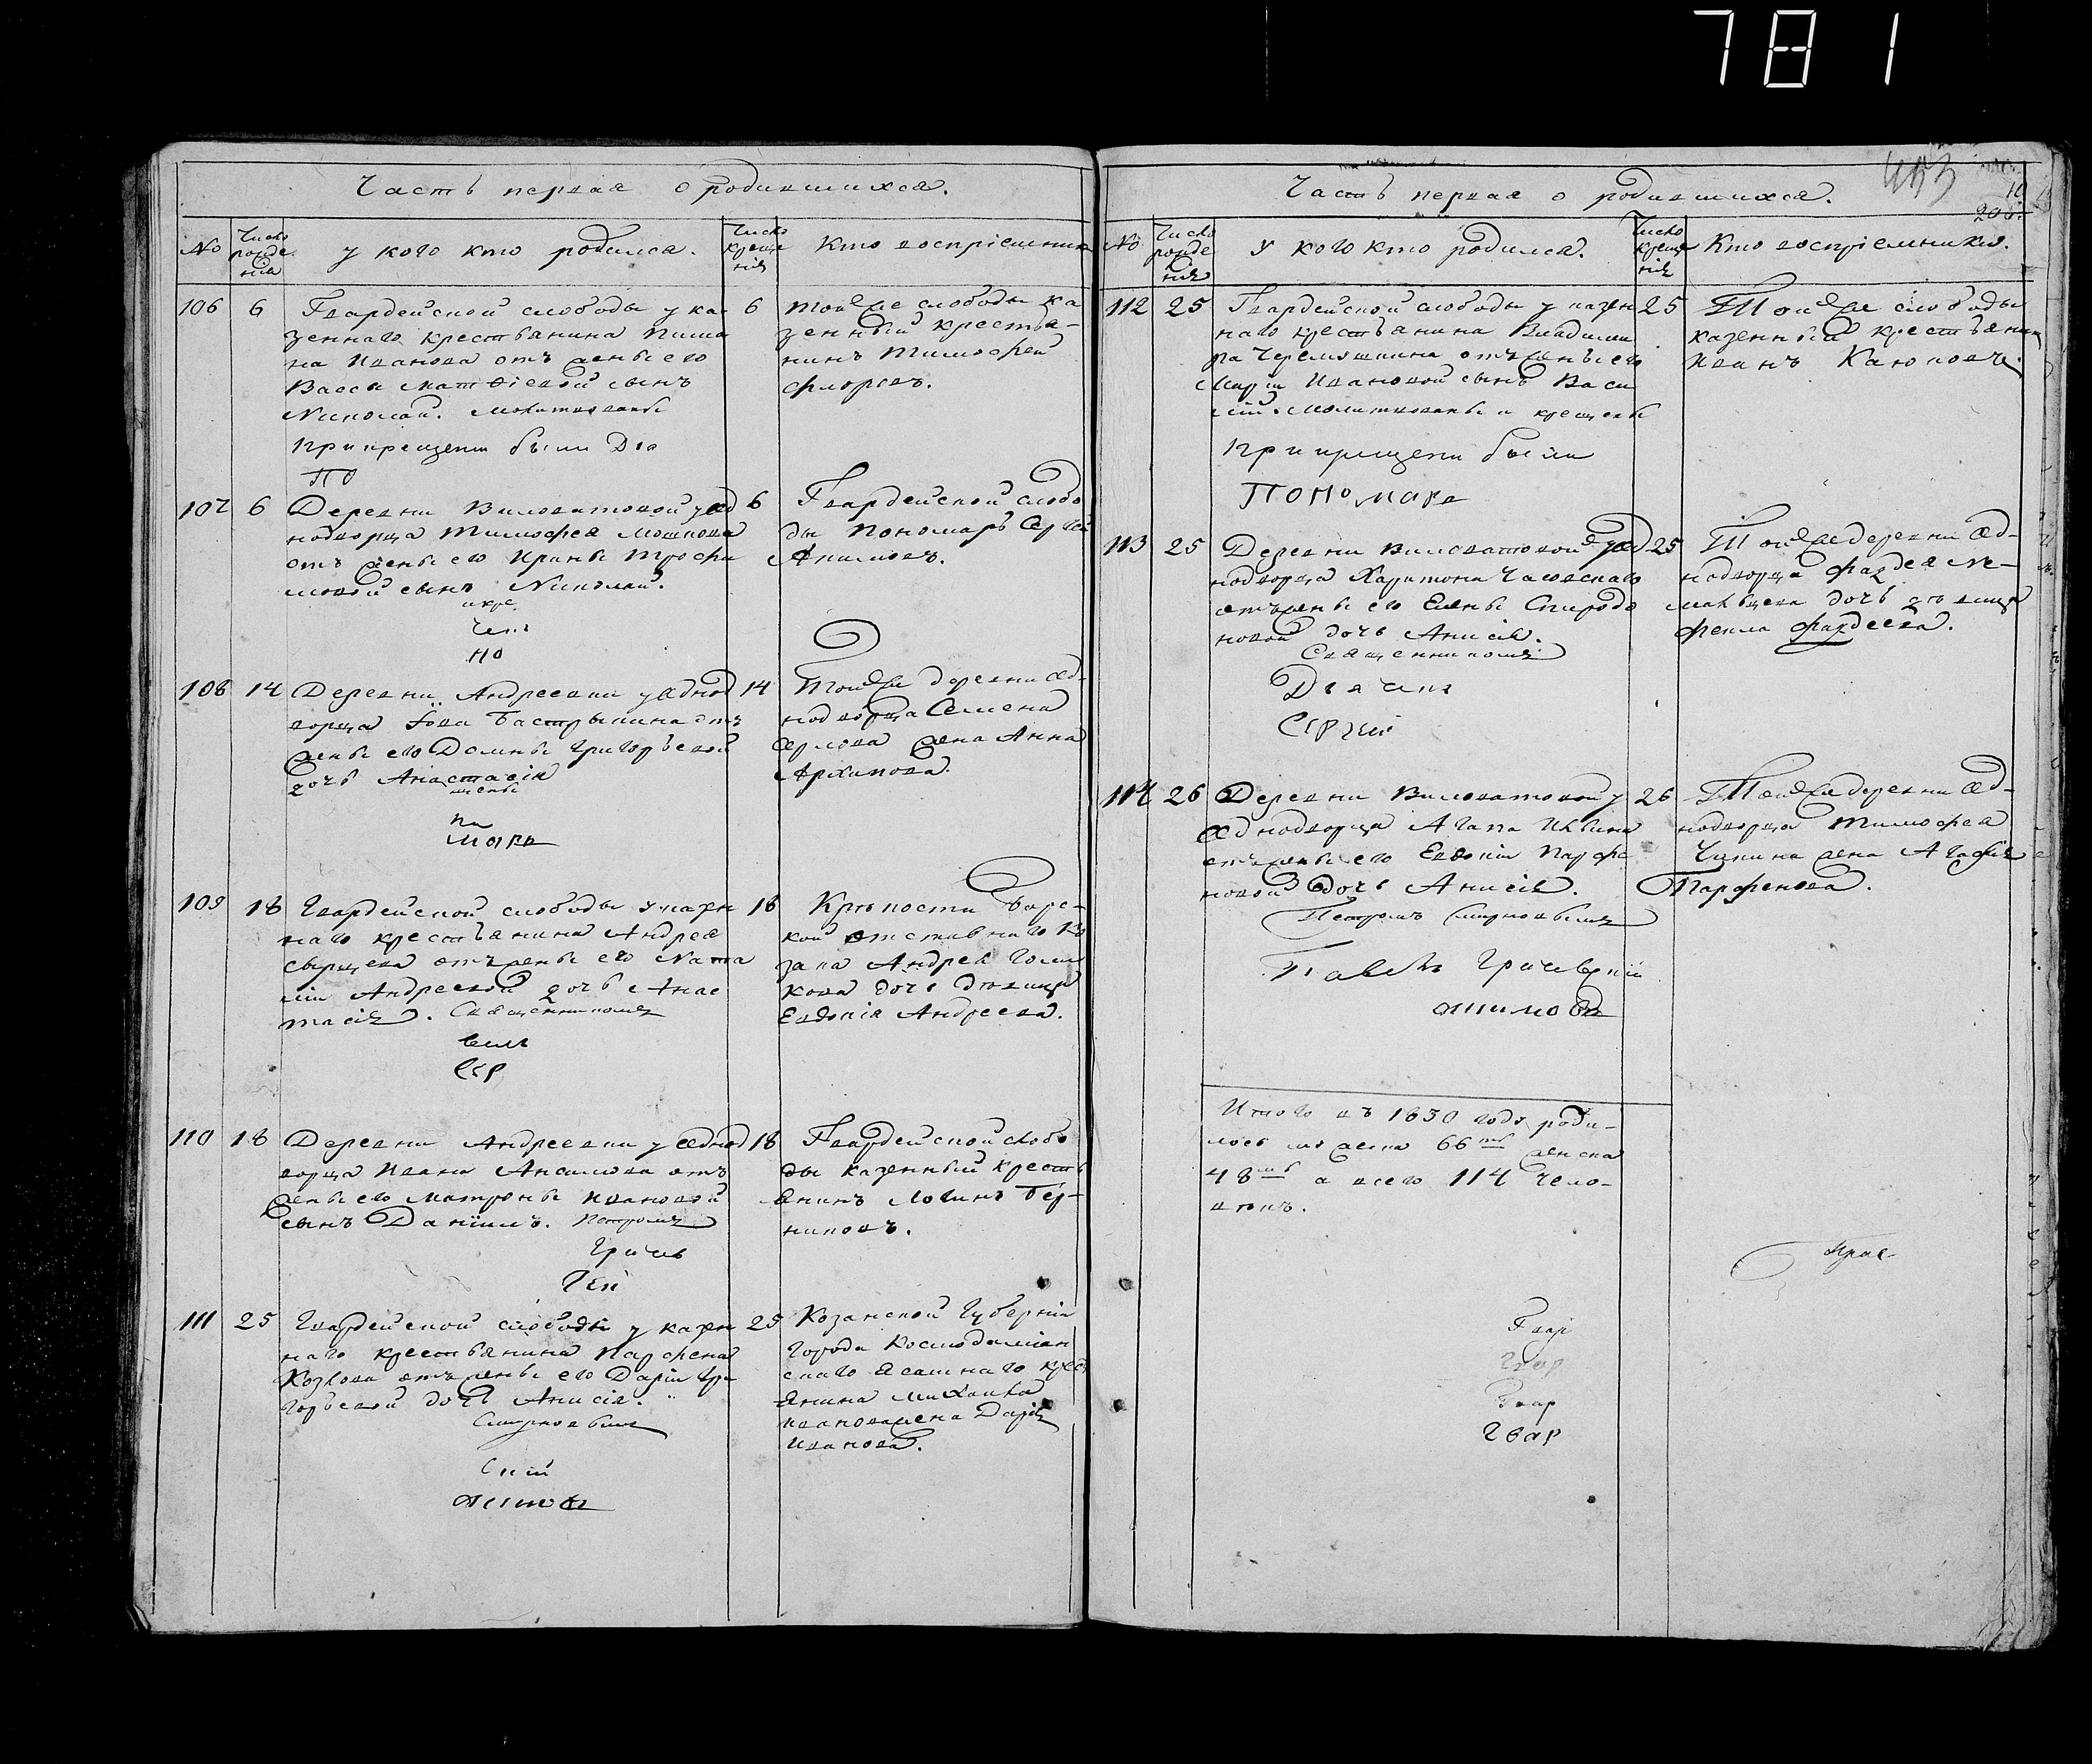 781
Часть первая о родившихся.
No
Число рожде нія
у кого кто родился.
Число креще нія
Кто воспріемники
106
6
Гвардейской слободы у ка
зеннаго крестьянина Пима
на Иванова отъ жены его
Вассы Матвіевой сынъ
Николай. Молитвованъ
При крещеніи были Діа
ПО
6
той же слободы ка
зенный крестья-
нинъ Тимофей
Флоровъ.
107
6
Деревни Виловатовой у од
нодворца Тимофея Мошкова
отъ жены его Ирины Трофи
мовой сынъ Николай.
и кре
по
6
Гвардейской слобо
ды Пономарь Сергей
Акимовъ.
108
14
Деревни Андреевки у однод
ворца Іова Бастрыкина отъ
жены его Домны Григорьевой
дочь Анастасія
щены
на
марь
14
Той же деревни Од-
нодворца Семена
Орлова жена Анна
Архипова.
109
18
Гвардейской слободы у казен
наго крестьянина Андрея
Сырцева отъ жены его Ната
ліи Андреевой дочь Анас
тасія. Священникомъ
Сер
18
Крѣпости Борс-
кой отставнаго Ко
зака Андрея Голи
кова дочь дѣвица
Евдокія Андреева.
110
18
Деревни Андреевки у однод
ворца Ивана Ансимова отъ
жены его Матроны Ивановой
сынъ Даніилъ. Петромъ
Гричь
гей
18
Гвардейской слобо
ды казенный кресть
янинъ Логинъ Бер-
никовъ.
111
25
Гвардейской слободы у казен
наго крестьянина Парфена
Козлова отъ жены его Даріи Гри
горьевой дочь Анисія.
Смирновымъ
скій
Акимовъ
25
Козанской Губерніи
города Космодаміан
скаго Ясашнаго крест
янина Михаила
Иванова жена Дарія
Иванова.
Часть первая о родившихся.
No
Число рожде нія
У кого кто родился.
Число креще нія
Кто воспріемники.
112
25
Гвардейской слободы у казен
наго крестьянина Владими
ра Черемушкина отъ жены его
Маріи Ивановой сынъ Васи
лій. Молитвованы и крещены
При крещеніи были
Пономарь
25
Той же слободы
казенный крестьянин
Иванъ Каюковъ.
113
25
Деревни Виловатовой у Од
нодворца Харитона Часовскаго
отъ жены его Елены Спиридо
новой дочь Анисія.
Священникомъ
Діачикъ
Сергей
25
Той же деревни Од-
нодворца Фадея Не-
мальцева дочь дѣвица
Фекла Фаддеева.
114
26
Деревни Виловатовой у
Однодворца Агапа Ильина
отъ жены его Евдокіи Парфе
новой дочь Анисія.
Петромъ Смирновымъ
Павелъ Гричевскій
Акимовъ
26
Той же деревни Од-
нодворца Тимофея
Чикина жена Агафія
Парфенова.
Итого въ 1830 году роди-
лось мужеска 66ть женска
48мь а всего 114 чело-
вѣкъ.
Гвар
Гвар
Гвар
Гвар